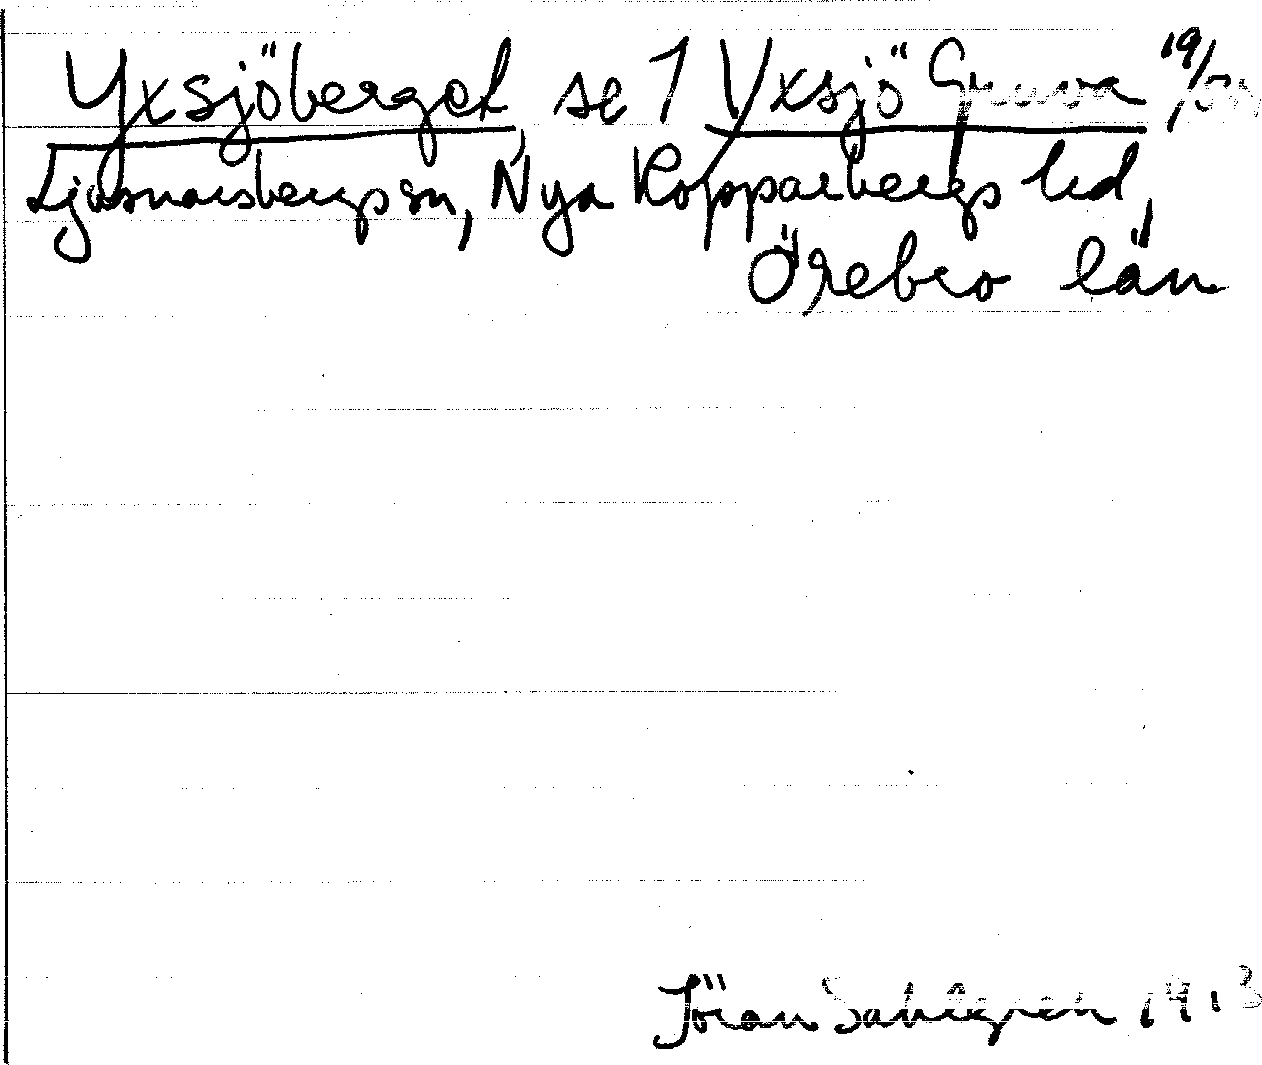 Yxsjöberget, se 1 Yxsjö Gruva
Ljusnarsbergs sn, Nya Kopparbergs hd,
Örebro län
Jöran Sahlgren 1913